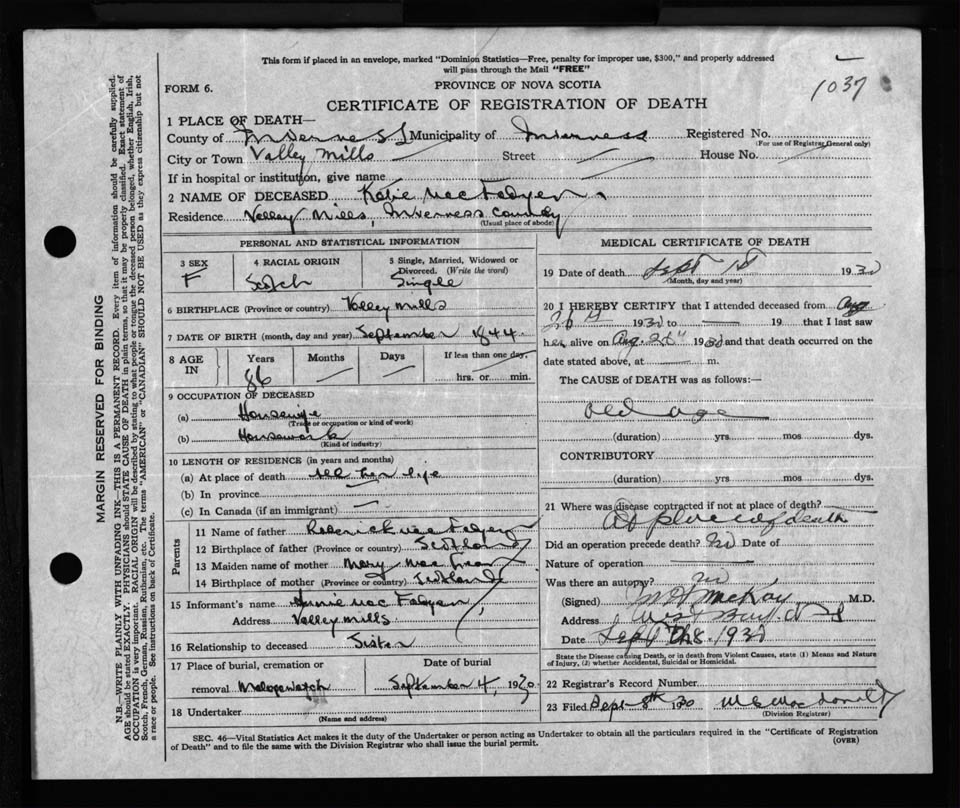 This form if placed in an envelope, marked "Dominion Statistics—Free, penalty for improper use, $300," and properly addressed
will pass through the Mail "FREE"
1037
FORM 6.
PROVINCE OF NOVA SCOTIA
CERTIFICATE OF REGISTRATION OF DEATH
1 PLACE OF DEATH—
County of Inverness Municipality of Inverness Registered No.
(For use of Registrar General only)
City or Town Valley Mills Street House No.
If in hospital or institution, give name
2 NAME OF DECEASED Katie MacFadyen
Residence Valley Mills, Inverness County
(Usual place of abode)
PERSONAL AND STATISTICAL INFORMATION
3 SEX 4 RACIAL ORIGIN 5 Single, Married, Widowed or
Divorced. (Write the word)
F Scotch Single
6 BIRTHPLACE (Province or country) Valley Mills
7 DATE OF BIRTH (month, day and year) September 1844
8 AGE IN Years Months Days If less than one day,
86 — — hrs. or min.
9 OCCUPATION OF DECEASED
(a) Housewife
(Trade or occupation or kind of work)
(b) Housework
(Kind of industry)
10 LENGTH OF RESIDENCE (in years and months)
(a) At place of death All her life
(b) In province —
(c) In Canada (if an immigrant) —
Parents
11 Name of father Roderick MacFadyen
12 Birthplace of father (Province or country) Scotland
13 Maiden name of mother Mary Mac
14 Birthplace of mother (Province or country) Scotland
15 Informant's name Annie MacFadyen
Address Valley Mills
16 Relationship to deceased Sister
17 Place of burial, cremation or Date of burial
removal Malagawatch September 4, 1930
18 Undertaker
(Name and address)
MEDICAL CERTIFICATE OF DEATH
19 Date of death Sept 1930
(Month, day and year)
20 I HEREBY CERTIFY that I attended deceased from Aug
1930 to — 19 that I last saw
her alive on Aug. 1930 and that death occurred on the
date stated above, at m.
The CAUSE of DEATH was as follows:—
Old age
(duration) yrs mos dys.
CONTRIBUTORY
(duration) yrs mos dys.
21 Where was disease contracted if not at place of death?
At place of death
Did an operation precede death? No Date of
Nature of operation —
Was there an autopsy? no
(Signed) MacKay M.D.
Address
Date Sept 1930
State the Disease causing Death, or in death from Violent Causes, state (1) Means and Nature
of Injury, (2) whether Accidental, Suicidal or Homicidal.
22 Registrar's Record Number
23 Filed Sept 8th 1930 MacDonald
(Division Registrar)
SEC. 46—Vital Statistics Act makes it the duty of the Undertaker or person acting as Undertaker to obtain all the particulars required in the "Certificate of Registration
of Death" and to file the same with the Division Registrar who shall issue the burial permit.
(OVER)
MARGIN RESERVED FOR BINDING
N.B.—WRITE PLAINLY WITH UNFADING INK—THIS IS A PERMANENT RECORD. Every item of information should be carefully supplied.
AGE should be stated EXACTLY. PHYSICIANS should STATE CAUSE OF DEATH in plain terms, so that it may be properly classified. Exact statement of
OCCUPATION is very important. RACIAL ORIGIN will be described by stating to what people or tongue the deceased person belonged, whether English, Irish,
Scotch, French, German, Russian, Ruthenian, etc. The terms "AMERICAN" or "CANADIAN" SHOULD NOT BE USED as they express citizenship but not
a race or people. See instructions on back of Certificate.